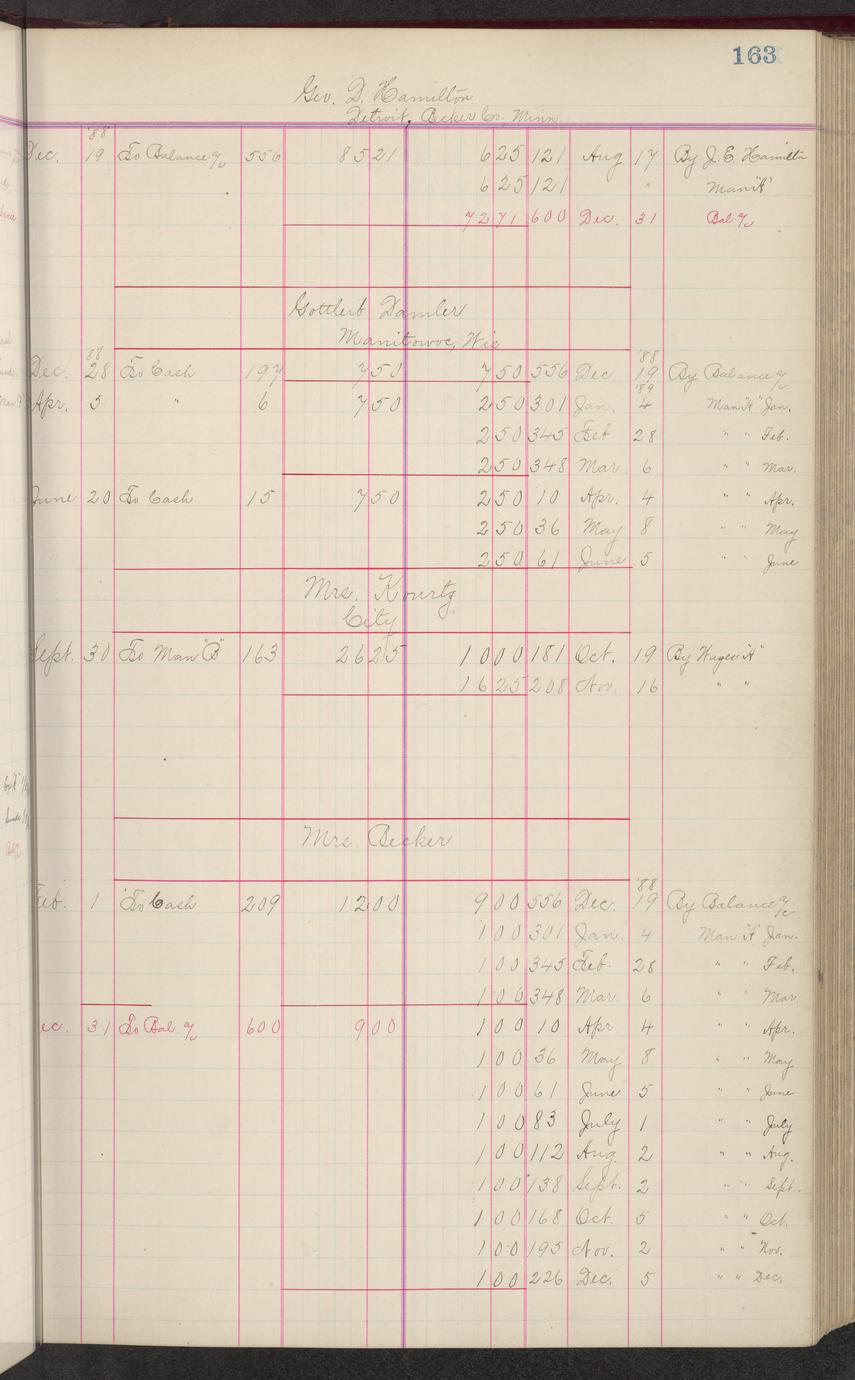 163
Geo. D. Hamilton
Detroit, Becker Co., Minn.
'88
Dec. 19 To Balance a/c 556 85 21 6 25 121 Aug 17 By J. E. Hamilton
6 25 121 " Man "A"
72 71 600 Dec. 31 Bal a/c
Gottlerb Damler
Manitowoc, Wis
88 '88
Dec. 28 To Cash 197 7 50 7 50 556 Dec 19 By Balance a/c
'89
Apr. 5 " 6 7 50 2 50 301 Jan. 4 Man "A" Jan.
2 50 345 Feb. 28 " " Feb.
2 50 348 Mar. 6 " " Mar.
June 20 To Cash 15 7 50 2 50 10 Apr. 4 " " Apr.
2 50 36 May 8 " " May
2 50 61 June 5 " " June
Mrs. Kourtz
City
Sept. 30 To Man "B" 163 26 25 10 00 181 Oct. 19 By Wages "A"
16 25 208 Nov. 16 " "
Mrs Becker
'88
Feb. 1 To Cash 209 12 00 9 00 556 Dec. 19 By Balance a/c
1 00 301 Jan. 4 Man "A" Jan.
1 00 345 Feb. 28 " " Feb.
1 00 348 Mar 6 " " Mar
ec. 31 To Bal. a/c 600 9 00 1 00 10 Apr. 4 " " Apr.
1 00 36 May 8 " " May
1 00 61 June 5 " " June
1 00 83 July 1 " " July
1 00 112 Aug. 2 " " Aug.
1 00 138 Sept. 2 " " Sept.
1 00 168 Oct. 5 " " Oct.
1 00 195 Nov. 2 " " Nov.
1 00 226 Dec. 5 " " Dec.